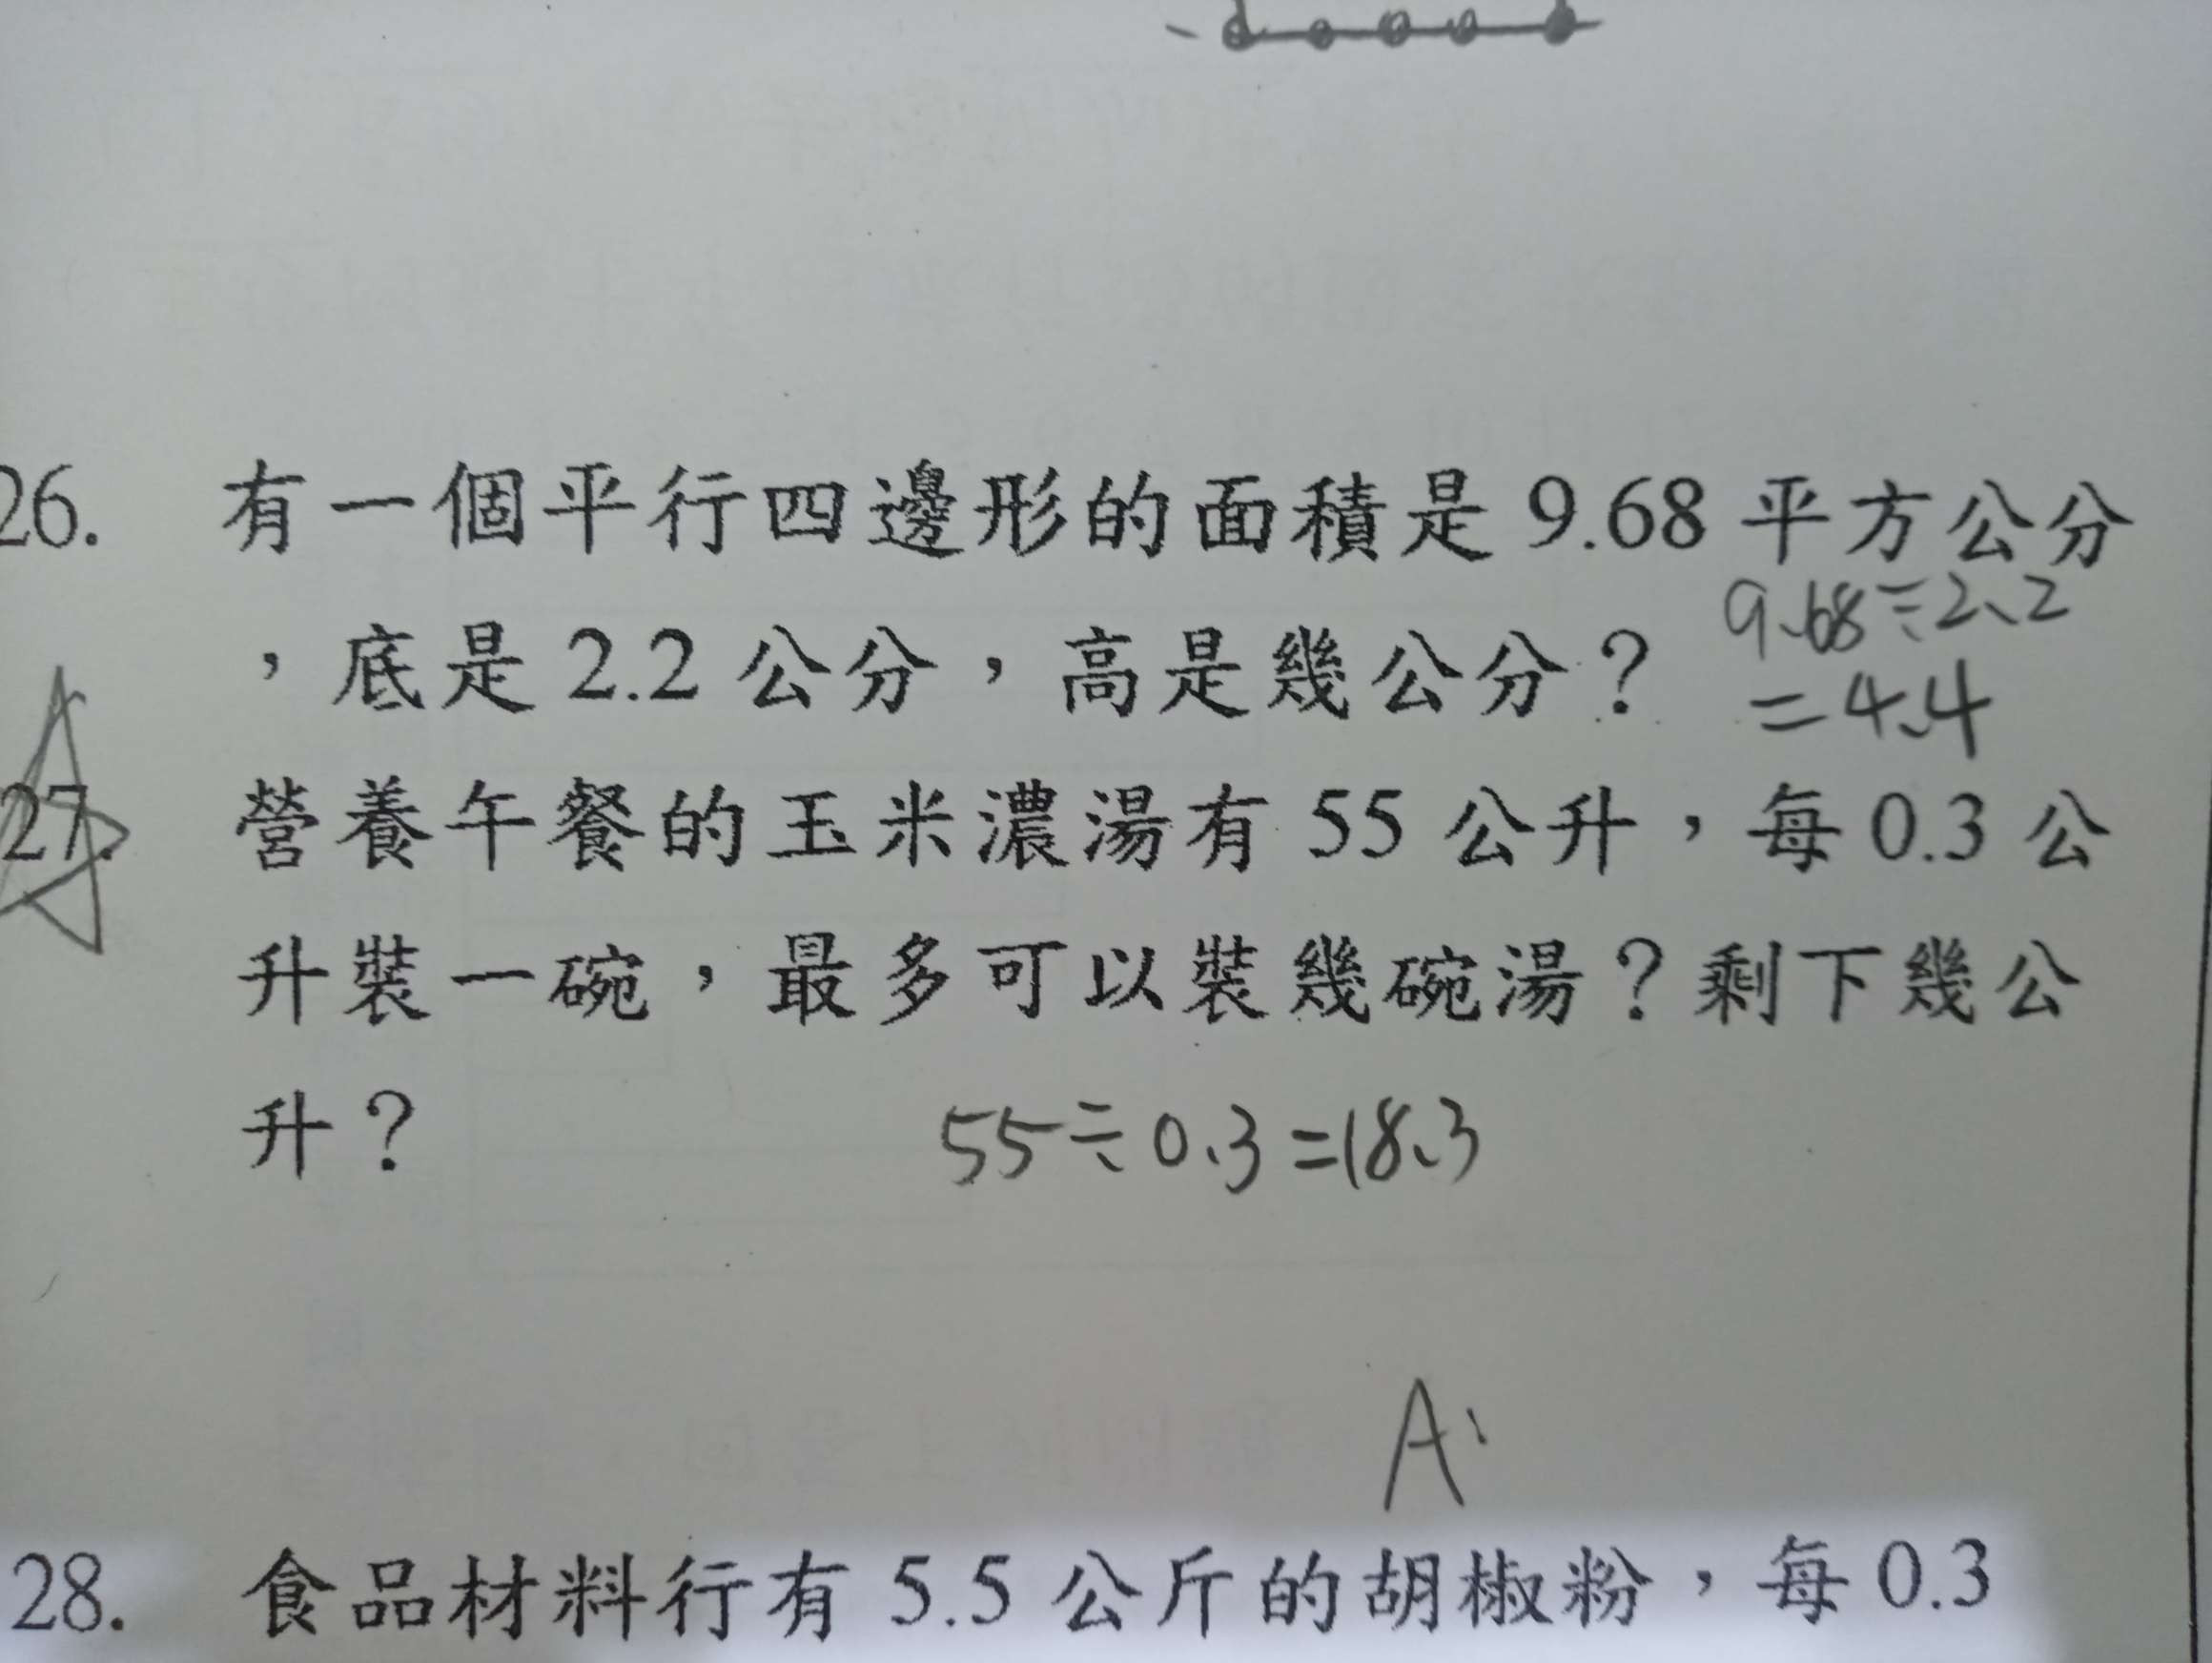 26. 有一個平行四邊形的面積是 9.68 平方公分
，底是 2.2 公分，高是幾公分？
9.68÷2.2
=4.4
27. 營養午餐的玉米濃湯有 55 公升，每 0.3 公
升裝一碗，最多可以裝幾碗湯？剩下幾公
升？
55÷0.3=18.3
A:
28. 食品材料行有 5.5 公斤的胡椒粉，每 0.3